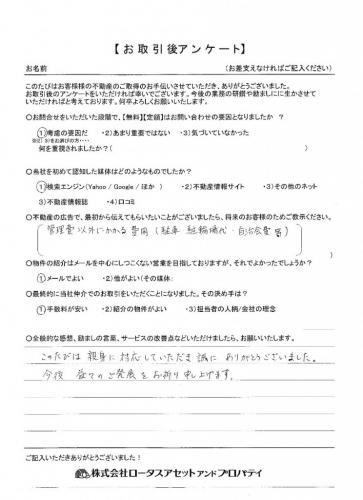 【お取引後アンケート】
お名前 (お差支えなければご記入ください)
このたびはお客様様の不動産のご取得のお手伝いさせていただき、ありがとうございました。
お取引後のアンケートをいただければ幸いでございます。今後の業務の研鑽や励ましに生かさせて
いただければと考えております。何卒よろしくお願いします。
○お問合せをいただいた段階で、【無料】【定価】はお問い合わせの要因となりましたか ?
①考慮の要因だ ・2)あまり重要ではない ・3)気づいていなかった
※2) 3)をお選びの方・・・
何を重視されましたか?( )
○当社を初めて認知した媒体はどのようなものでしたか?
①検索エンジン(Yahoo / Google / ほか ) ・2)不動産情報サイト ・3)その他のネット
3)不動産情報誌 ・4)口コミ
○不動産の広告で、最初から伝えてもらいたいことがございましたら、将来のお客様のためご教示ください。
管理費以外にかかる費用(駐車 駐輪場代・自治会費等)
○物件の紹介はメールを中心にしつこくない営業を目指しておりますが、それでよかったでしょうか?
①メールでよい ・2)他がよい(その媒体:
○最終的に当社仲介でのお取引をいただくことになりました。その決め手は?
①手数料が安い ・2)紹介の物件がよい ・3)担当者の人柄/会社の理念
○全般的な感想、励ましの言葉、サービスの改善点などいただけましたら、お願いいたします。
このたびは 親身に対応していただき誠に ありがとうございました。
今後 益々のご発展をお祈り申し上げます。
ご記入いただきありがとうございました!
株式会社ロータスアセットアンドプロパティ